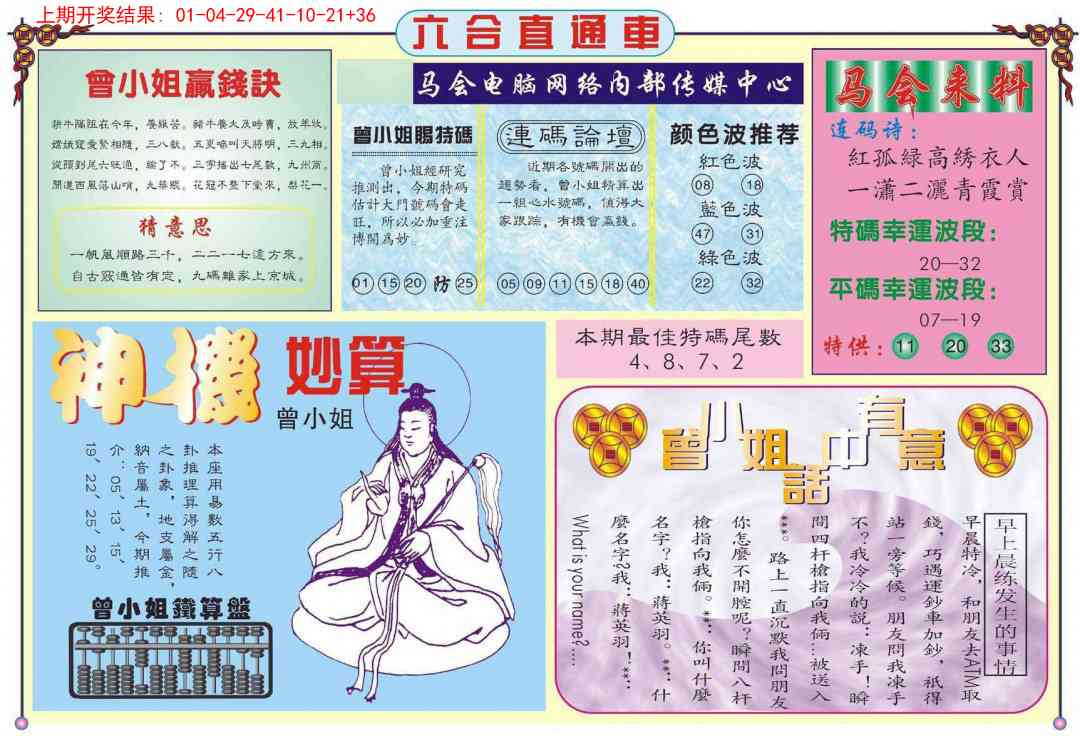 上期开奖结果: 01-04-29-41-10-21+36
六合直通車
曾小姐贏錢訣
猜意思
一帆風順路三千，二二一七遠方來。
自古窮通皆有定，九碼離家上京城。
马会电脑网络内部传媒中心
曾小姐賜特碼
曾小姐經研究
推測出，今期特碼
估計大門號碼會走
旺，所以必加重注
博開為妙。
01 15 20 防 25
連碼論壇
近期各號碼開出的
趨勢看，曾小姐精算出
一組心水號碼，值得大
家跟踪，有機會贏錢。
05 09 11 15 18 40
颜色波推荐
紅色波
08 18
藍色波
47 31
綠色波
22 32
马会来料
连码诗：
紅孤緑高綉衣人
一瀟二灑青霞賞
特碼幸運波段：
20—32
平碼幸運波段：
07—19
特供：11 20 33
本期最佳特碼尾數
4、8、7、2
神機妙算
曾小姐
本座用易數五行八
卦推理算得解之隨
之卦象，地支屬金，
納音屬土，今期推
介：05、13、15、
19、22、25、29。
曾小姐鐵算盤
曾小姐話中有意
早上晨练发生的事情
早晨特冷，和朋友去ATM取
錢，巧遇運鈔車加鈔，祇得
站一旁等候。朋友問我凍手
不？我冷冷的説：凍手！瞬
間四杆槍指向我倆…被送入
***。路上一直沉默我問朋友
你怎麼不開腔呢？瞬間八杆
槍指向我倆。**：你叫什麼
名字？我：蔣英羽。**：什
麼名字?我：蔣英羽！**：
What is your name?....